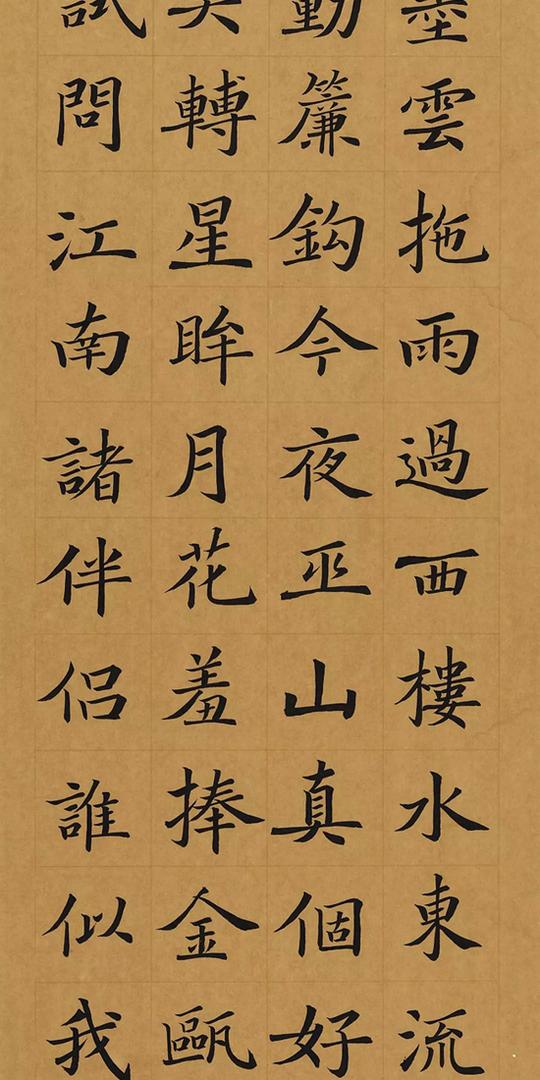 墨雲拖雨過西樓水東流
動簾鈎今夜巫山真個好
笑轉星眸月花羞捧金甌
試問江南諸伴侶誰似我